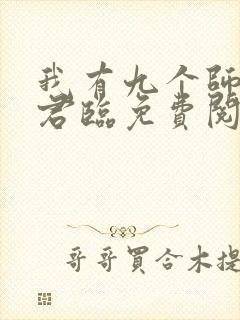 我有九个師
君臨免費閱
哥哥買合木提